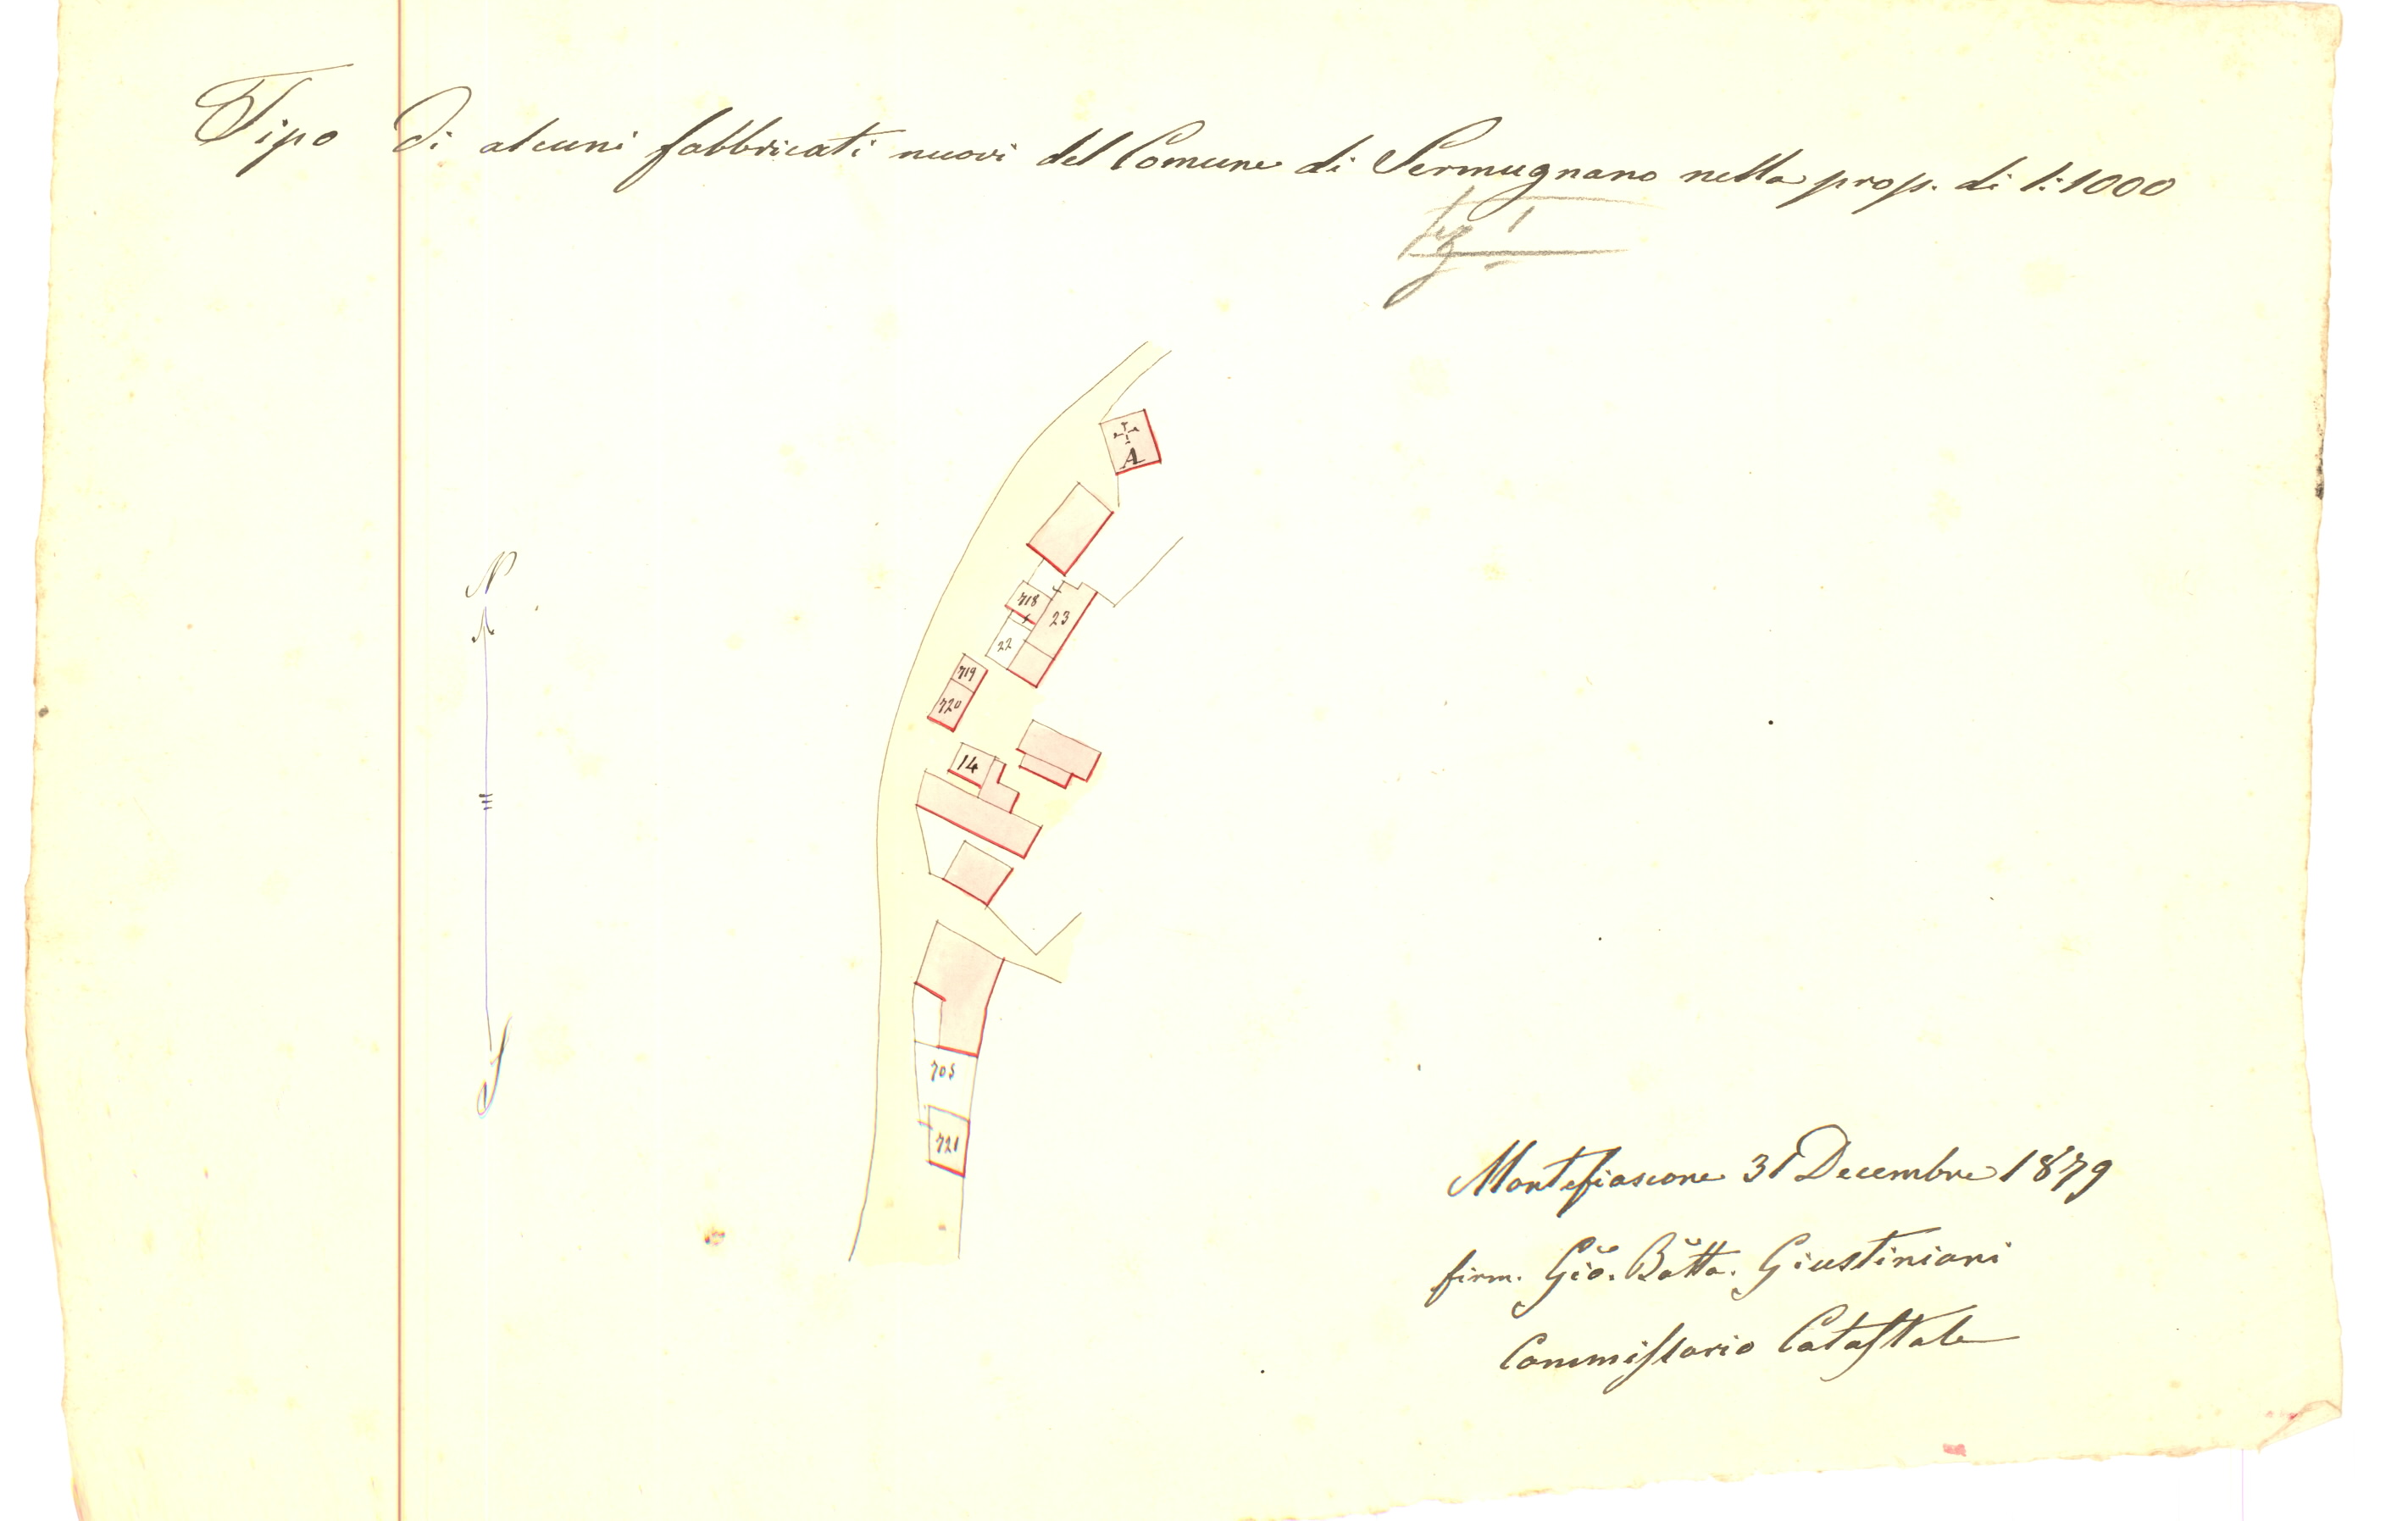 Tipo di alcuni fabbricati nuovi del Comune di Sermugnano nella prop. di 1:1000
A
718
23
22
719
720
14
N
705
721
S
Montefiascone 31 Decembre 1879
firm. Gio. Batta. Giustiniani
Commissario Catastale